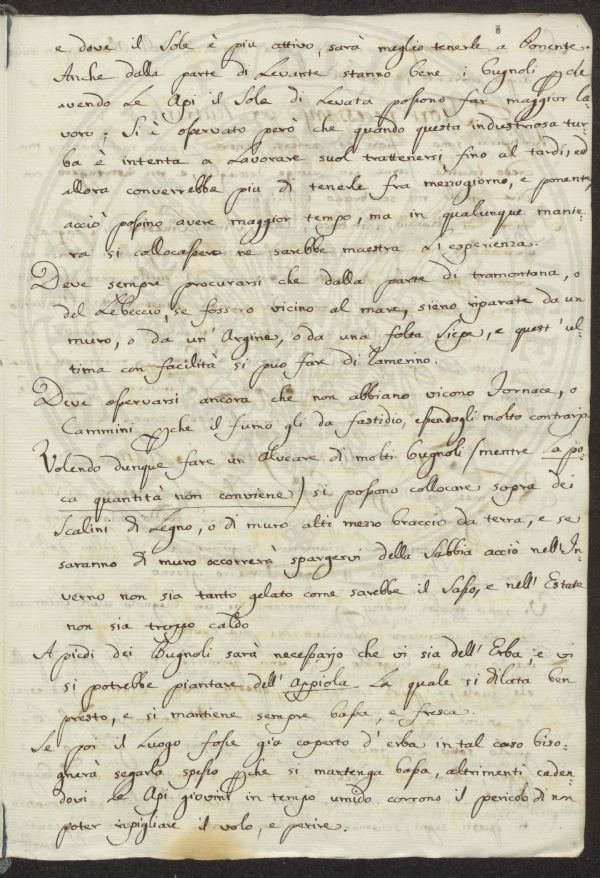 8
e dove il Sole è piu attivo, sarà meglio tenerle a Ponente.
Anche dalla parte di Levante stanno bene i Bugnoli p che
avendo Le Api il Sole di Levata possono far maggior la-
voro; Si è osservato però che quando questa industriosa tur-
ba è intenta a Lavorare suol trattenersi fino al tardi, ed
allora converrebbe piu di tenerle fra mezzogiorno, e ponente,
acciò possino avere maggior tempo, ma in qualunque manie-
ra si collocassero ne sarebbe maestra L'esperienza.
Deve sempre procurarsi che dalla parte di tramontana, o
del Lebeccio, se fossero vicino al mare, sieno riparate da un
muro, o da un' Argine, o da una folta Siepe, e quest' ul-
tima con facilità si puo fare di Tamerino.
Deve osservarsi ancora che non abbiano vicono Fornace, o
Cammini p che il fumo gli da fastidio, essendogli molto contrario.
Volendo dunque fare un Alveare di molti Bugnoli (mentre La po-
ca quantità non conviene) si possono collocare sopra dei
Scalini di Legno, o di muro alti mezzo braccio da terra, e se
saranno di muro occorrerà spargervi della Sabbia acciò nell' In-
verno non sia tanto gelato come sarebbe il Sasso, e nell' Estate
non sia troppo caldo
A piedi dei Bugnoli sarà necessario che vi sia dell' Erba, e vi
si potrebbe piantare dell' Appiola La quale si dilata ben
presto, e si mantiene sempre bassa, e fresca.
Se poi il Luogo fosse già coperto d' erba in tal caso biso-
gnerà segarla spesso p che si mantenga bassa, altrimenti caden-
dovi Le Api giovini in tempo umido corrono il pericolo di non
poter ripigliare il volo, e perire.